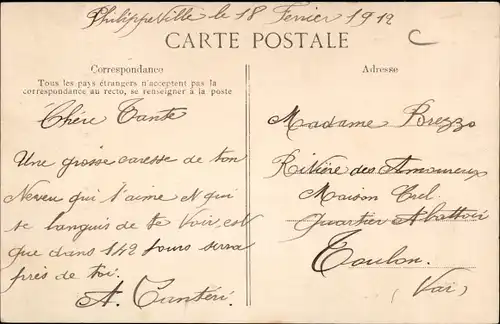 Philippeville le 18 Fevrier 1912
CARTE POSTALE
C
Correspondance
Tous les pays étrangers n'acceptent pas la
correspondance au recto, se renseigner à la poste
Chère Tante
Une grosse caresse de ton
Neveu qui t'aime et qui
se languis de te voir, est
que dans 142 jours serra
près de toi.
A. Tantéri
Adresse
Madame Borezzo
Rivière des Amoureux
Maison Ciel
Quartier Abattoir
Toulon.
(Var)